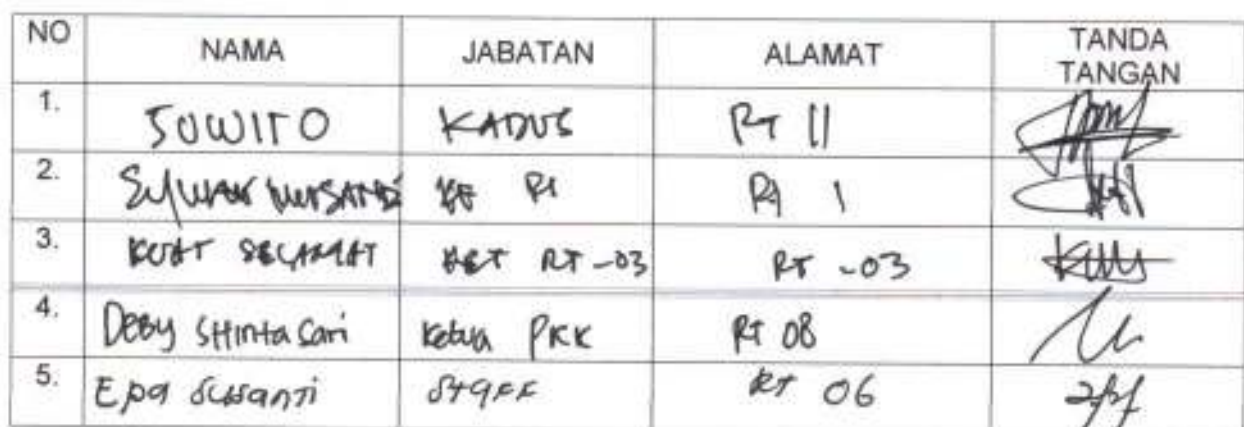 NO NAMA JABATAN ALAMAT TANDA TANGAN
1. SUWITO KADUS RT 11
2. KE RT RT 1
3. KUAT SELAMAT KET RT-03 RT-03
4. DEBY SHINTA Sari Ketua PKK RT 08
5. Epa Susanti STAFF RT 06